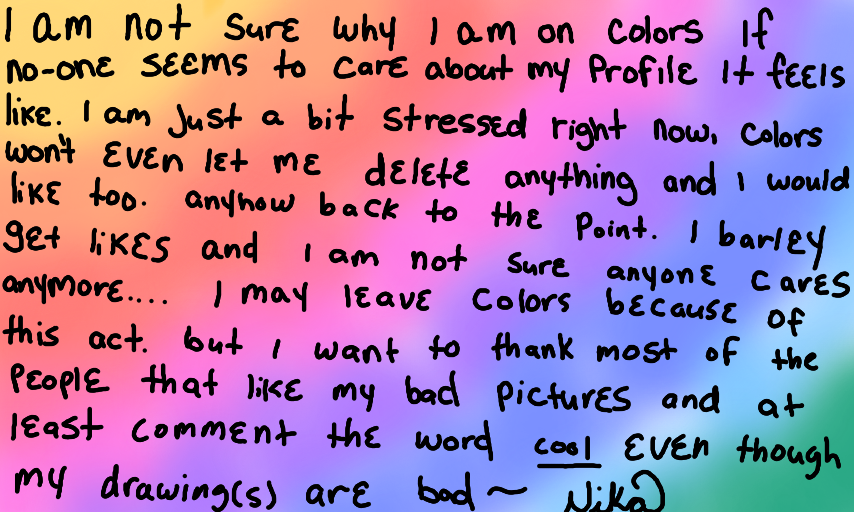 I am not sure why I am on colors If
no-one seems to care about my Profile It feels
like. I am Just a bit stressed right now, colors
won't Even let me delete anything and I would
like too. anyhow back to the Point. I barley
get likes and I am not sure anyone cares
anymore.... I may leave colors because of
this act. but I want to thank most of the
People that like my bad Pictures and at
least comment the word cool Even though
my drawing(s) are bad ~ Nika